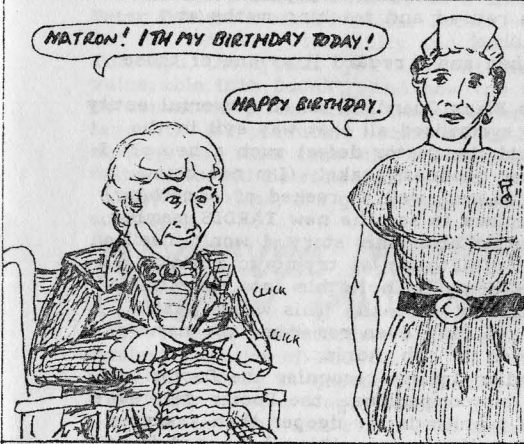 MATRON! ITH MY BIRTHDAY TODAY!
HAPPY BIRTHDAY.
CLICK
CLICK